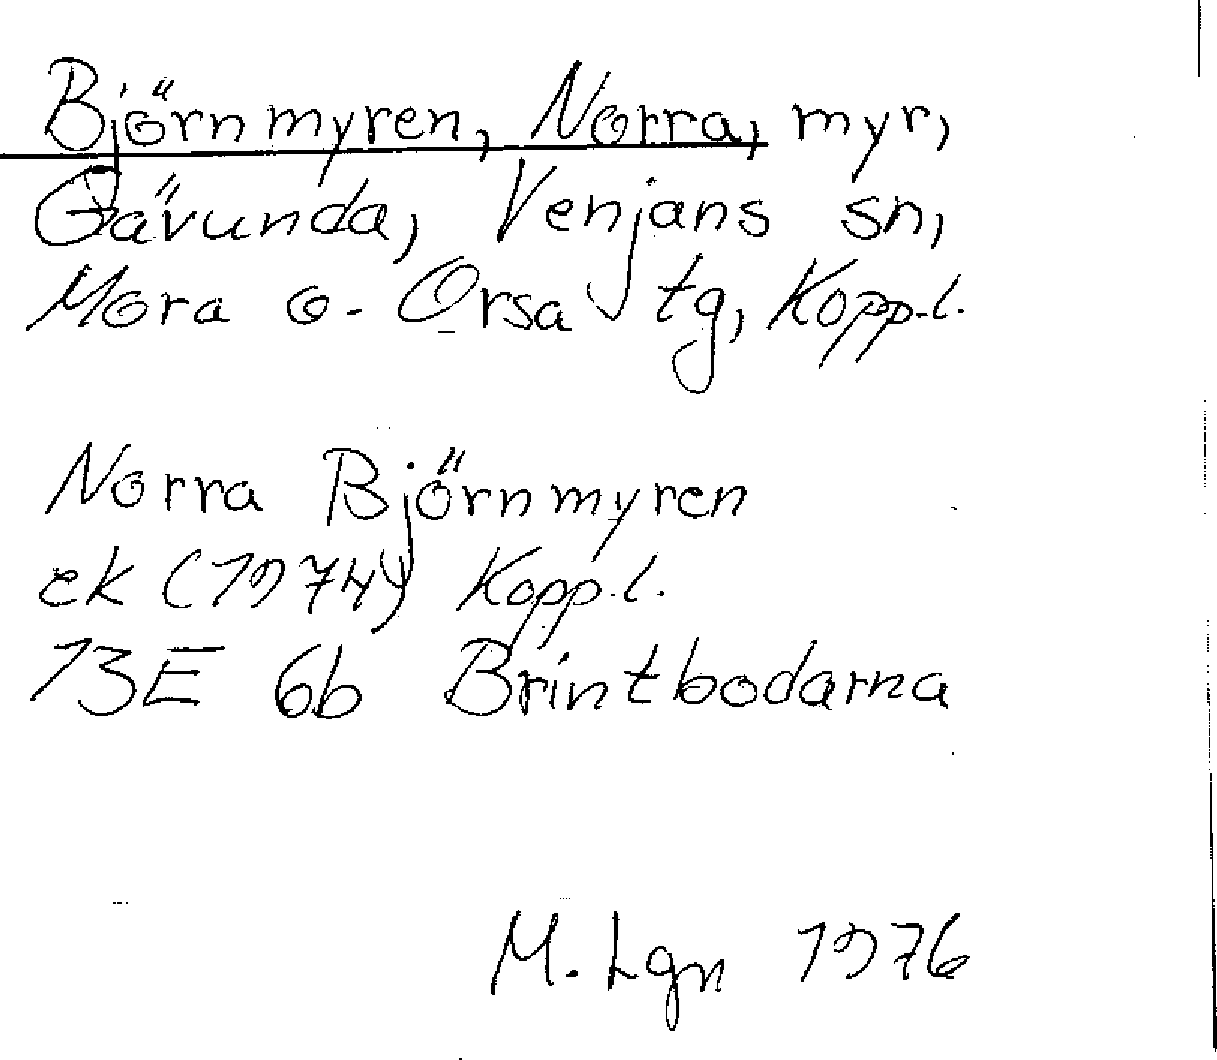 Björnmyren, Norra, myr,
Gävunda, Venjans sn,
Mora o. Orsa tg, Kopp.l.
Norra Björnmyren
ek (1974) Kopp.l.
13E 6b Brintbodarna
M. Lgn 1976